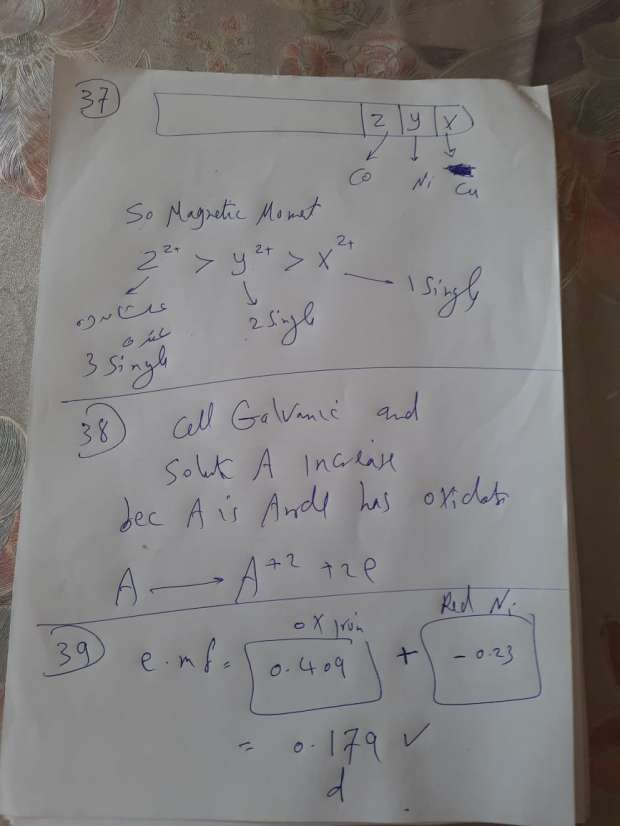 37
Z y x
Co Ni Cu
So Magnetic Momet
Z²⁺ > y²⁺ > x²⁺
1 Single
2 Single
3 Single
38 Cell Galvanic and
Solut A Increase
bec A is Anode has oxidat
A → A⁺² + 2e
39 e.mf = ox iron 0.409 + Red Ni -0.23
= 0.179 ✓
d